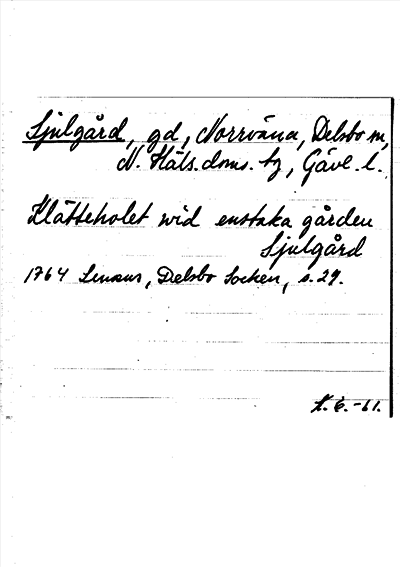 Sjulgård, gd, Norrväna, Delsbo sn,
N. Häls. doms. tg, Gävl. l.
Klätteholet wid enstaka gården
Sjulgård
1764 Lenæus, Delsbo Socken, s. 29.
K. G. -61.